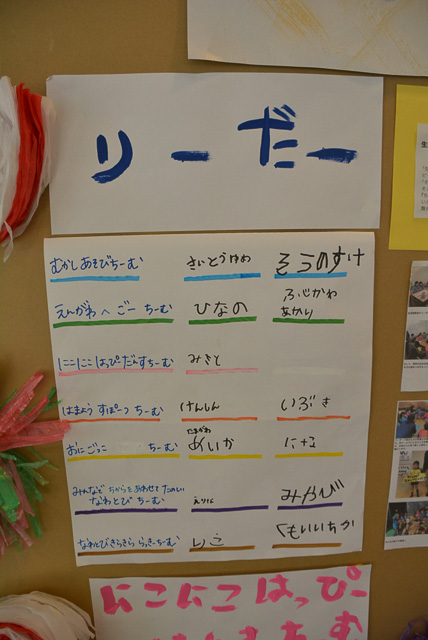 りーだー
むかしあそびちーむ さいとうゆめ そうのすけ
えんがわへごーちーむ ひなの ふじかわ
あかり
にこにこはっぴだんすちーむ みさと
はまようすぽーつちーむ けんしん いぶき
たまがわ
おにごっこ ちーむ めいか
みんなどちからをあわせてたのしい
なわとびちーむ えりん みやび
なわとびきらきららっきーちーむ りこ くもいいちか
にこにこはっぴー